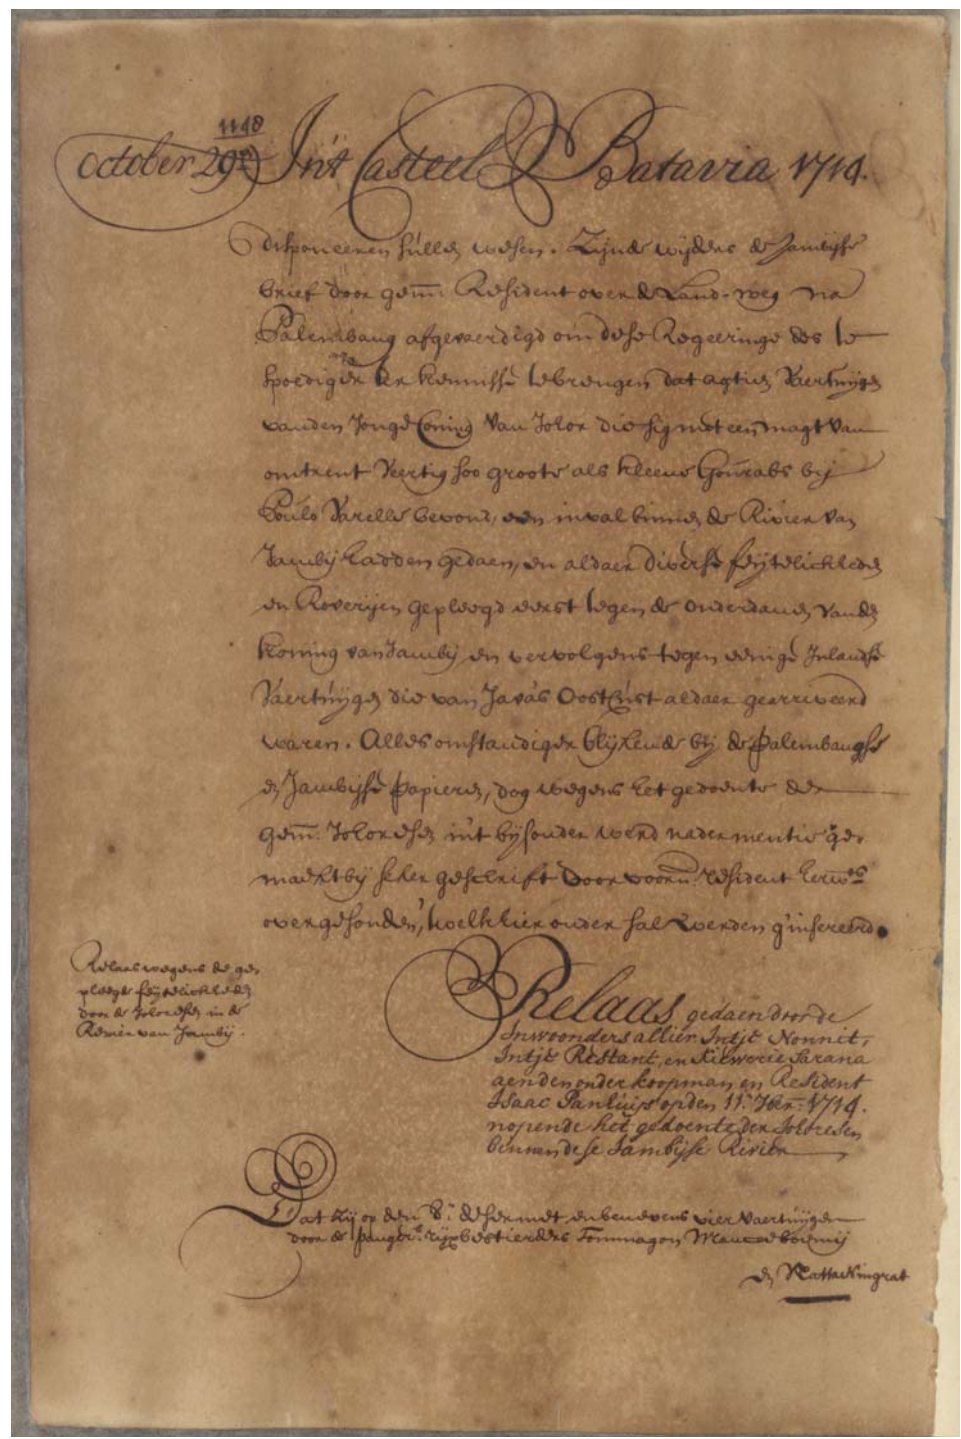 1148
October 29:e In't Casteel Batavia 1714.
disponeeren sullen wesen. Zijnde wijders de Jambijse
brief door gem: Resident over de Land-weg na
Palembang afgevaerdigd om dese Regeeringe des te
spoediger ter kennisse te brengen dat agtien Vaertuijgen
van den Jonge Coning van Johor die sig met een magt van
omtrent Veertig soo groote als kleene Gourabs bij
Poulo Varelle bevond, een inval binnen de Rivier van
Jambij hadden gedaen, en aldaer diverse feijtelickheden
en Roverijen gepleegd eerst tegen de onderdanen van den
Koning van Jambij en vervolgens tegen eenige Inlandse
Vaertuijgen die van Java's Oostcust aldaer gearriveerd
waren. Alles omstandiger blijkende bij de Palembangse
en Jambijse papieren, dog wegens het gedoente der
gem: Johoresen in't bijsonder werd nader mentie ge-
maekt bij seker geschrift door voorn: resident herw:s
overgesonden, welk hier onder sal werden g'insereerd.
Relaas wegens de ge-
pleegde feijtelickheden
door de Johoresen in de
Rivier van Jambij.
Relaas gedaen door de
Inwoonders alhier Intje Nonnit,
Intje Restant, en Kiewerie Sarana
aen den onder koopman en Resident
Isaac Panhuijs op den 11:e 7ber: 1714.
nopende het gedoente der Johoresen
binnen dese Jambijse Rivier
Dat zij op den 8:e deser met en benevens vier vaertuijgen
door de Panger:s rijxbestierders Tommagon
en Natta Ningrat